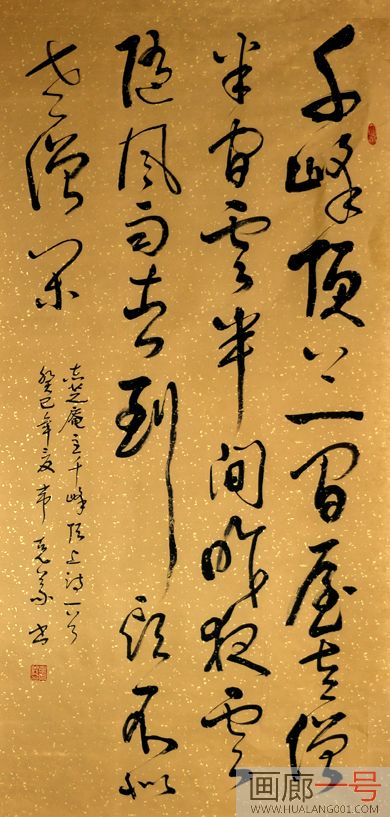 千峰顶上一间屋老僧
半间雲半间昨夜雲
随风雨去到头不似
老僧闲
志芝庵主千峰顶上诗一首
癸巳年夏韦克义书
画廊一号
WWW.HUALANG001.COM